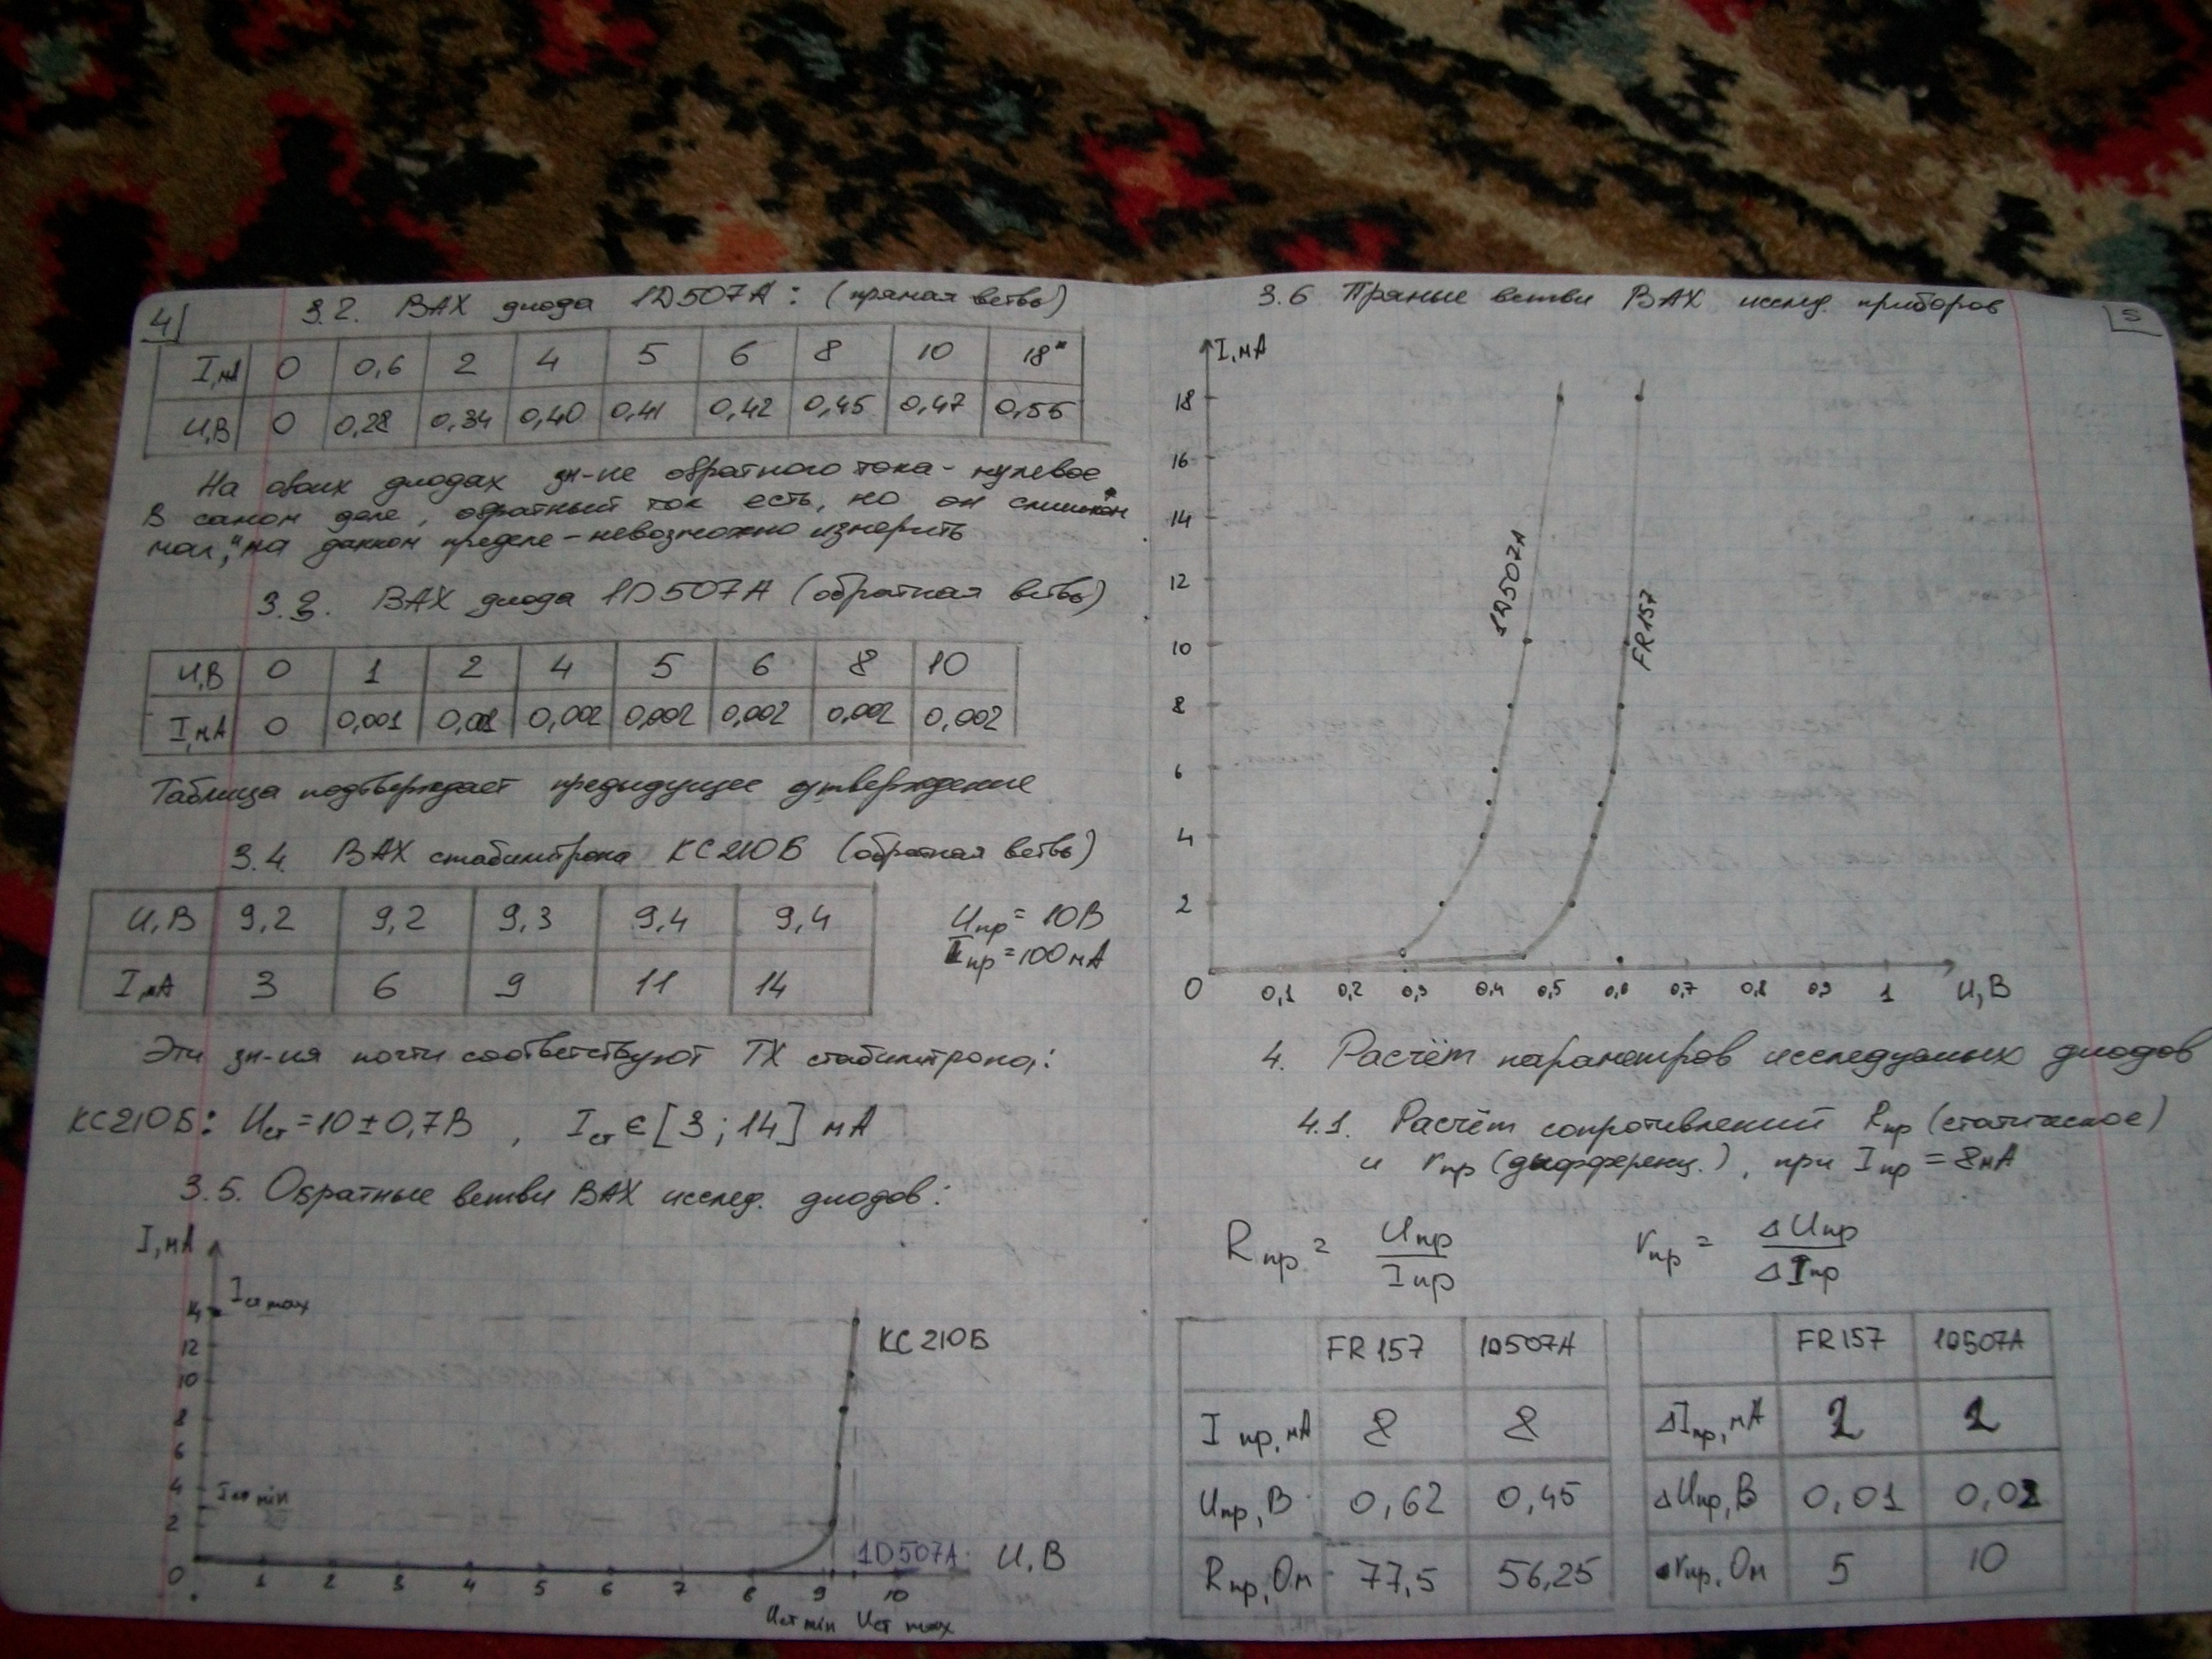 4
3.2. ВАХ диода 1D507A: (прямая ветвь)
I,мА 0 0,6 2 4 5 6 8 10 18*
U,В 0 0,28 0,34 0,40 0,41 0,42 0,45 0,47 0,55
На обоих диодах зн-ие обратного тока - нулевое
В самом деле, обратный ток есть, но он слишком
мал, на данном пределе - невозможно измерить
3.3. ВАХ диода 1D507A (обратная ветвь)
U,В 0 1 2 4 5 6 8 10
I,мА 0 0,001 0,002 0,002 0,002 0,002 0,002
Таблица подтверждает предыдущее утверждение
3.4. ВАХ стабилитрона КС210Б (обратная ветвь)
U,В 9,2 9,2 9,3 9,4 9,4
I,мА 3 6 9 11 14
Uпр = 10В
Iпр = 100мА
Эти зн-ия почти соответствуют ТХ стабилитрона:
КС210Б: Uст = 10 ± 0,7В , Iст ∈ [3;14] мА
3.5. Обратные ветви ВАХ исслед. диодов:
I,мА
Iст max
14
12
10
8
6
4
Iст min
2
0 1 2 3 4 5 6 7 8 9 10
КС210Б
1D507A
U,В
Uст min Uст max
5
3.6 Прямые ветви ВАХ исслед. приборов
I,мА
18
16
14
12
10
8
6
4
2
1D507A
FR157
0 0,1 0,2 0,3 0,4 0,5 0,6 0,7 0,8 0,9 1 U,В
4. Расчёт параметров исследуемых диодов
4.1. Расчёт сопротивлений Rпр (статическое)
и rпр (дифференц.), при Iпр = 8мА
Rпр = Uпр / Iпр
rпр = ΔUпр / ΔIпр
FR157 1D507A
Iпр, мА 8 8
Uпр, В 0,62 0,45
Rпр, Ом 77,5 56,25
FR157 1D507A
ΔIпр, мА 2 2
ΔUпр, В 0,01 0,02
rпр, Ом 5 10